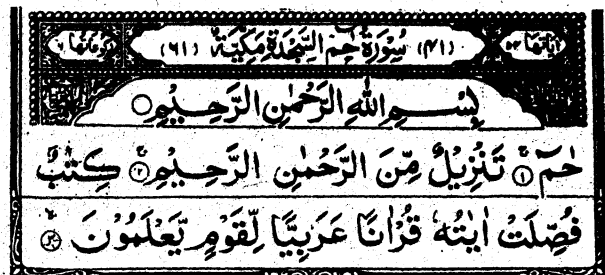 اٰيَاتُهَا ٥٤ (٤١) سُوْرَةُ حٰمٓ السَّجْدَةِ مَكِّيَّةٌ (٦١) رُكُوْعَاتُهَا ٦
بِسْمِ اللّٰهِ الرَّحْمٰنِ الرَّحِيْمِ
حٰمٓ ۚ﴿۱﴾ تَنْزِيْلٌ مِّنَ الرَّحْمٰنِ الرَّحِيْمِ ۚ﴿۲﴾ كِتٰبٌ
فُصِّلَتْ اٰيٰتُهٗ قُرْاٰنًا عَرَبِيًّا لِّقَوْمٍ يَّعْلَمُوْنَ ۙ﴿۳﴾